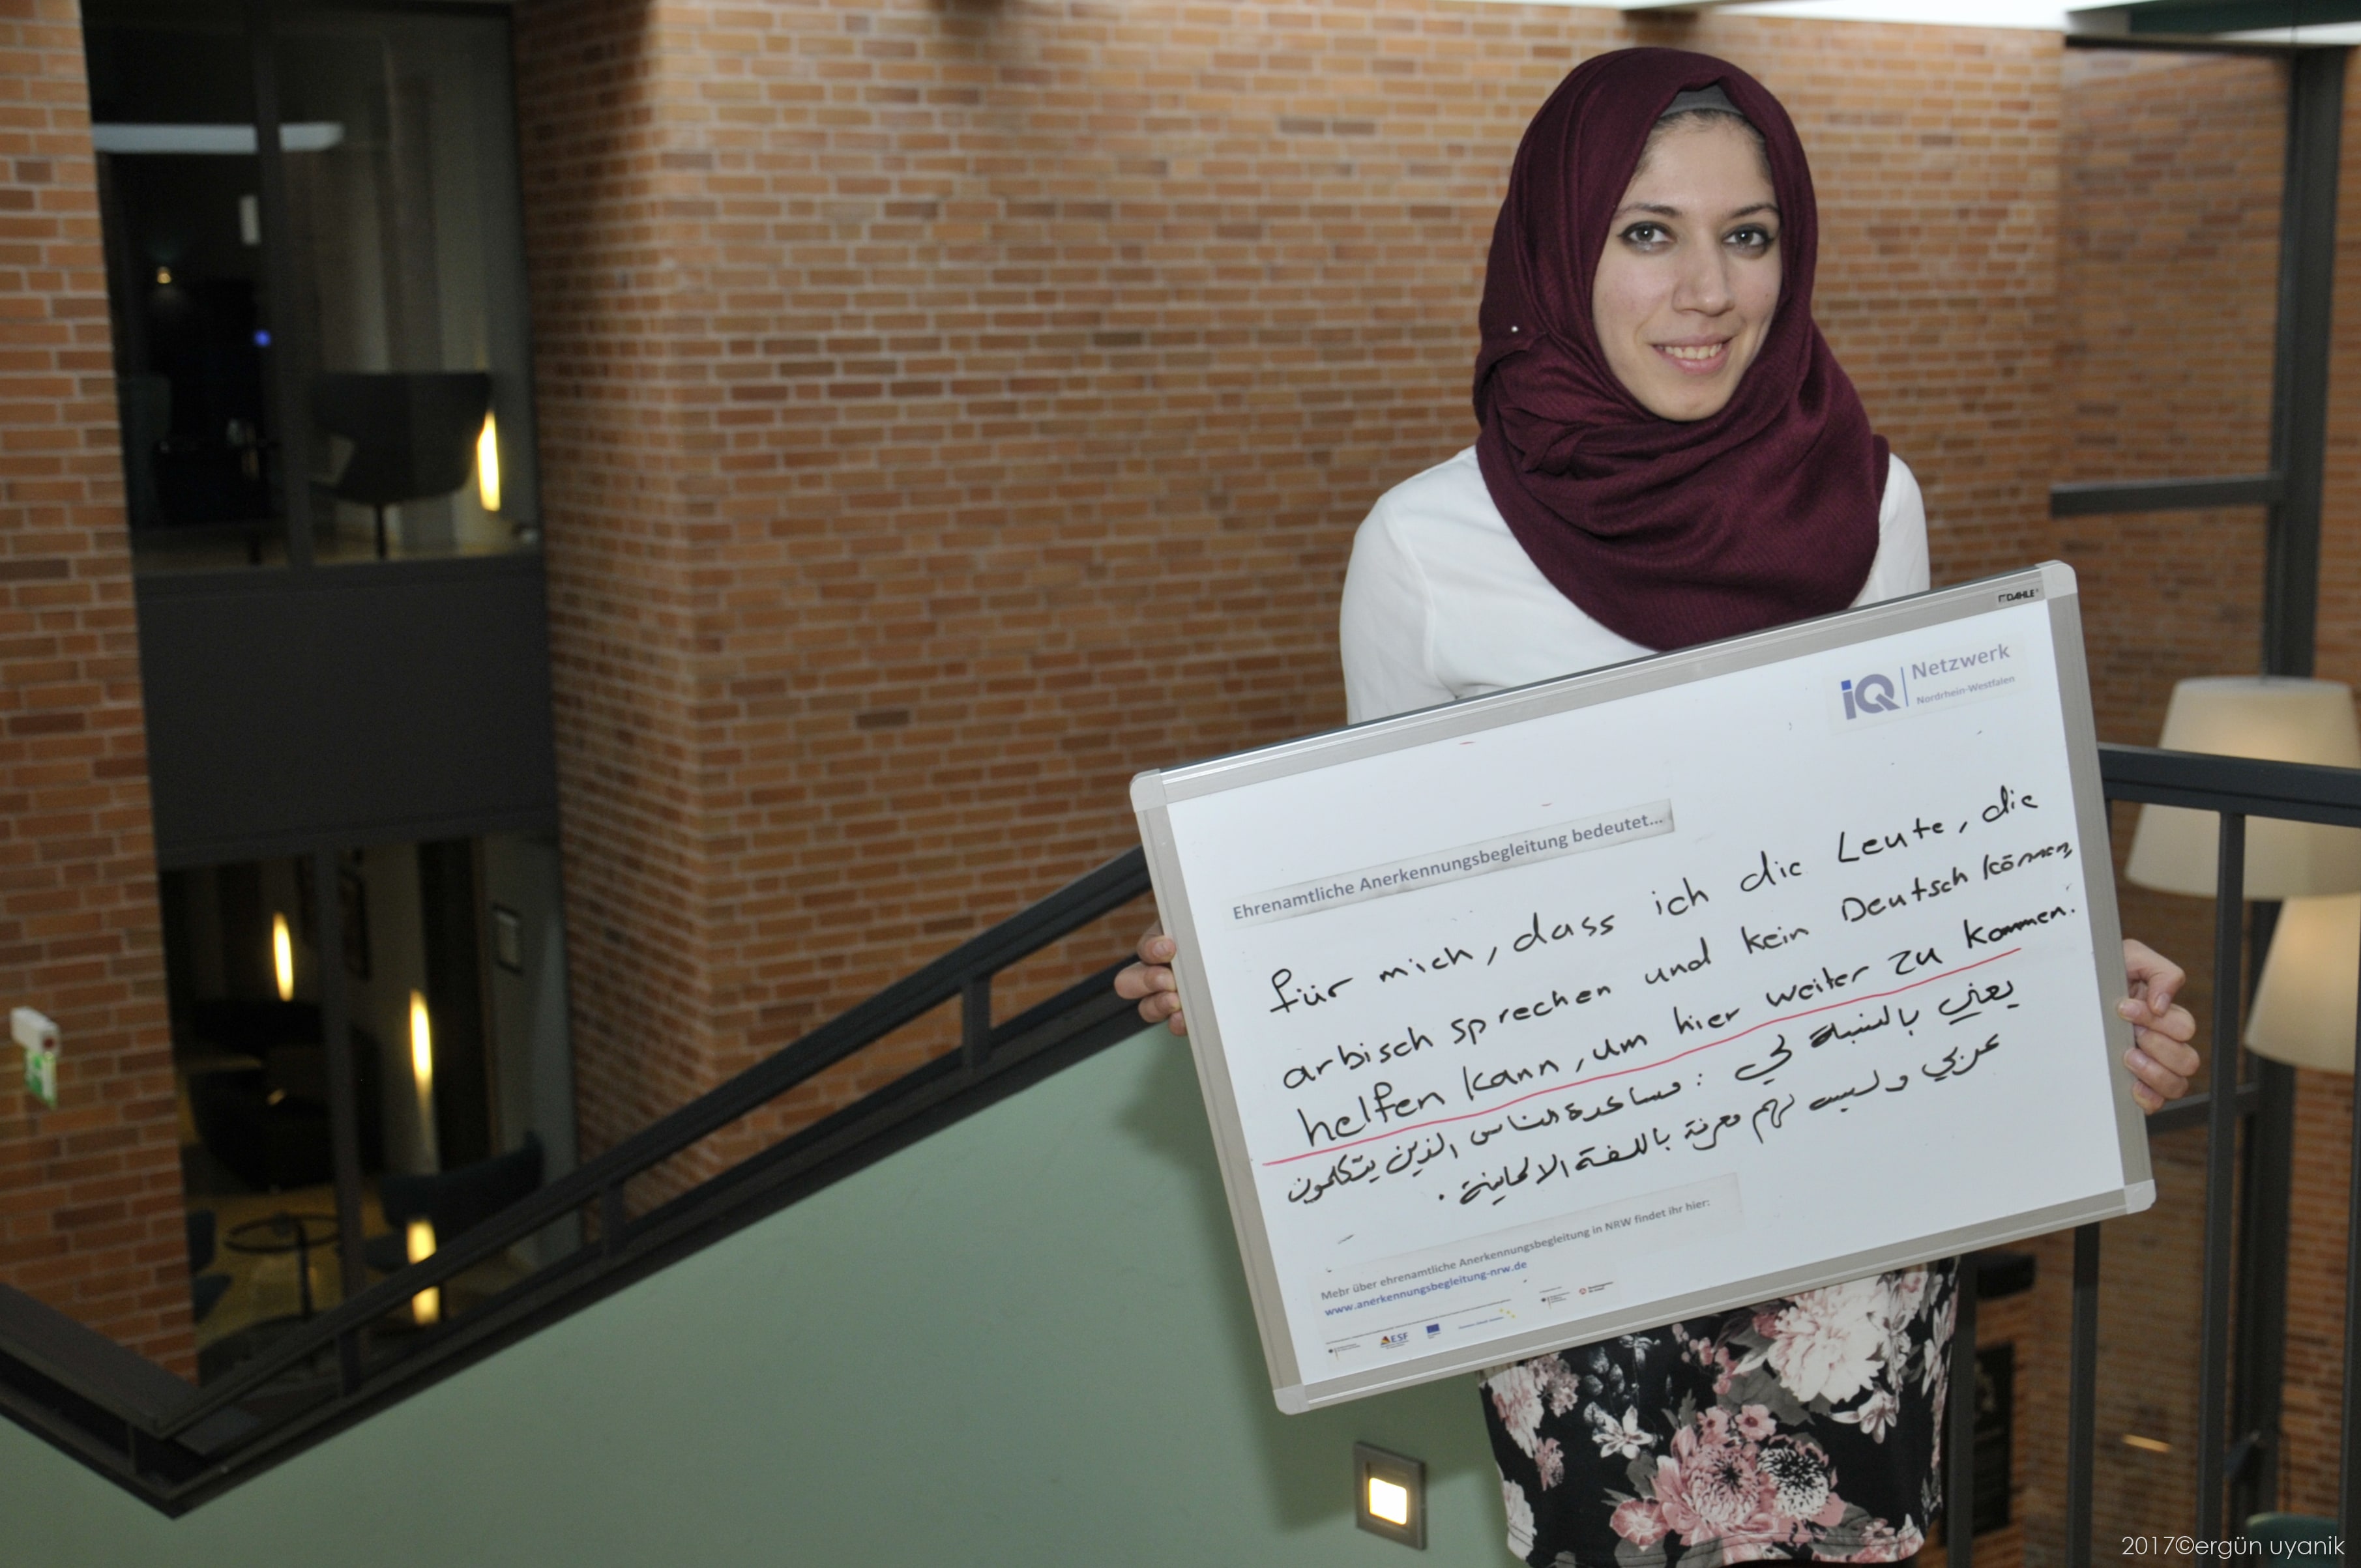 DAHLE
iQ Netzwerk
Nordrhein-Westfalen
Ehrenamtliche Anerkennungsbegleitung bedeutet...
für mich, dass ich die Leute, die
arbisch sprechen und kein Deutsch können,
helfen kann, um hier weiter zu kommen.
يعني بالنسبة لي : مساعدة الناس الذين يتكلمون
عربي وليس لهم معرفة باللغة الالمانية .
Mehr über ehrenamtliche Anerkennungsbegleitung in NRW findet ihr hier:
www.anerkennungsbegleitung-nrw.de
ESF
2017©ergün uyanik